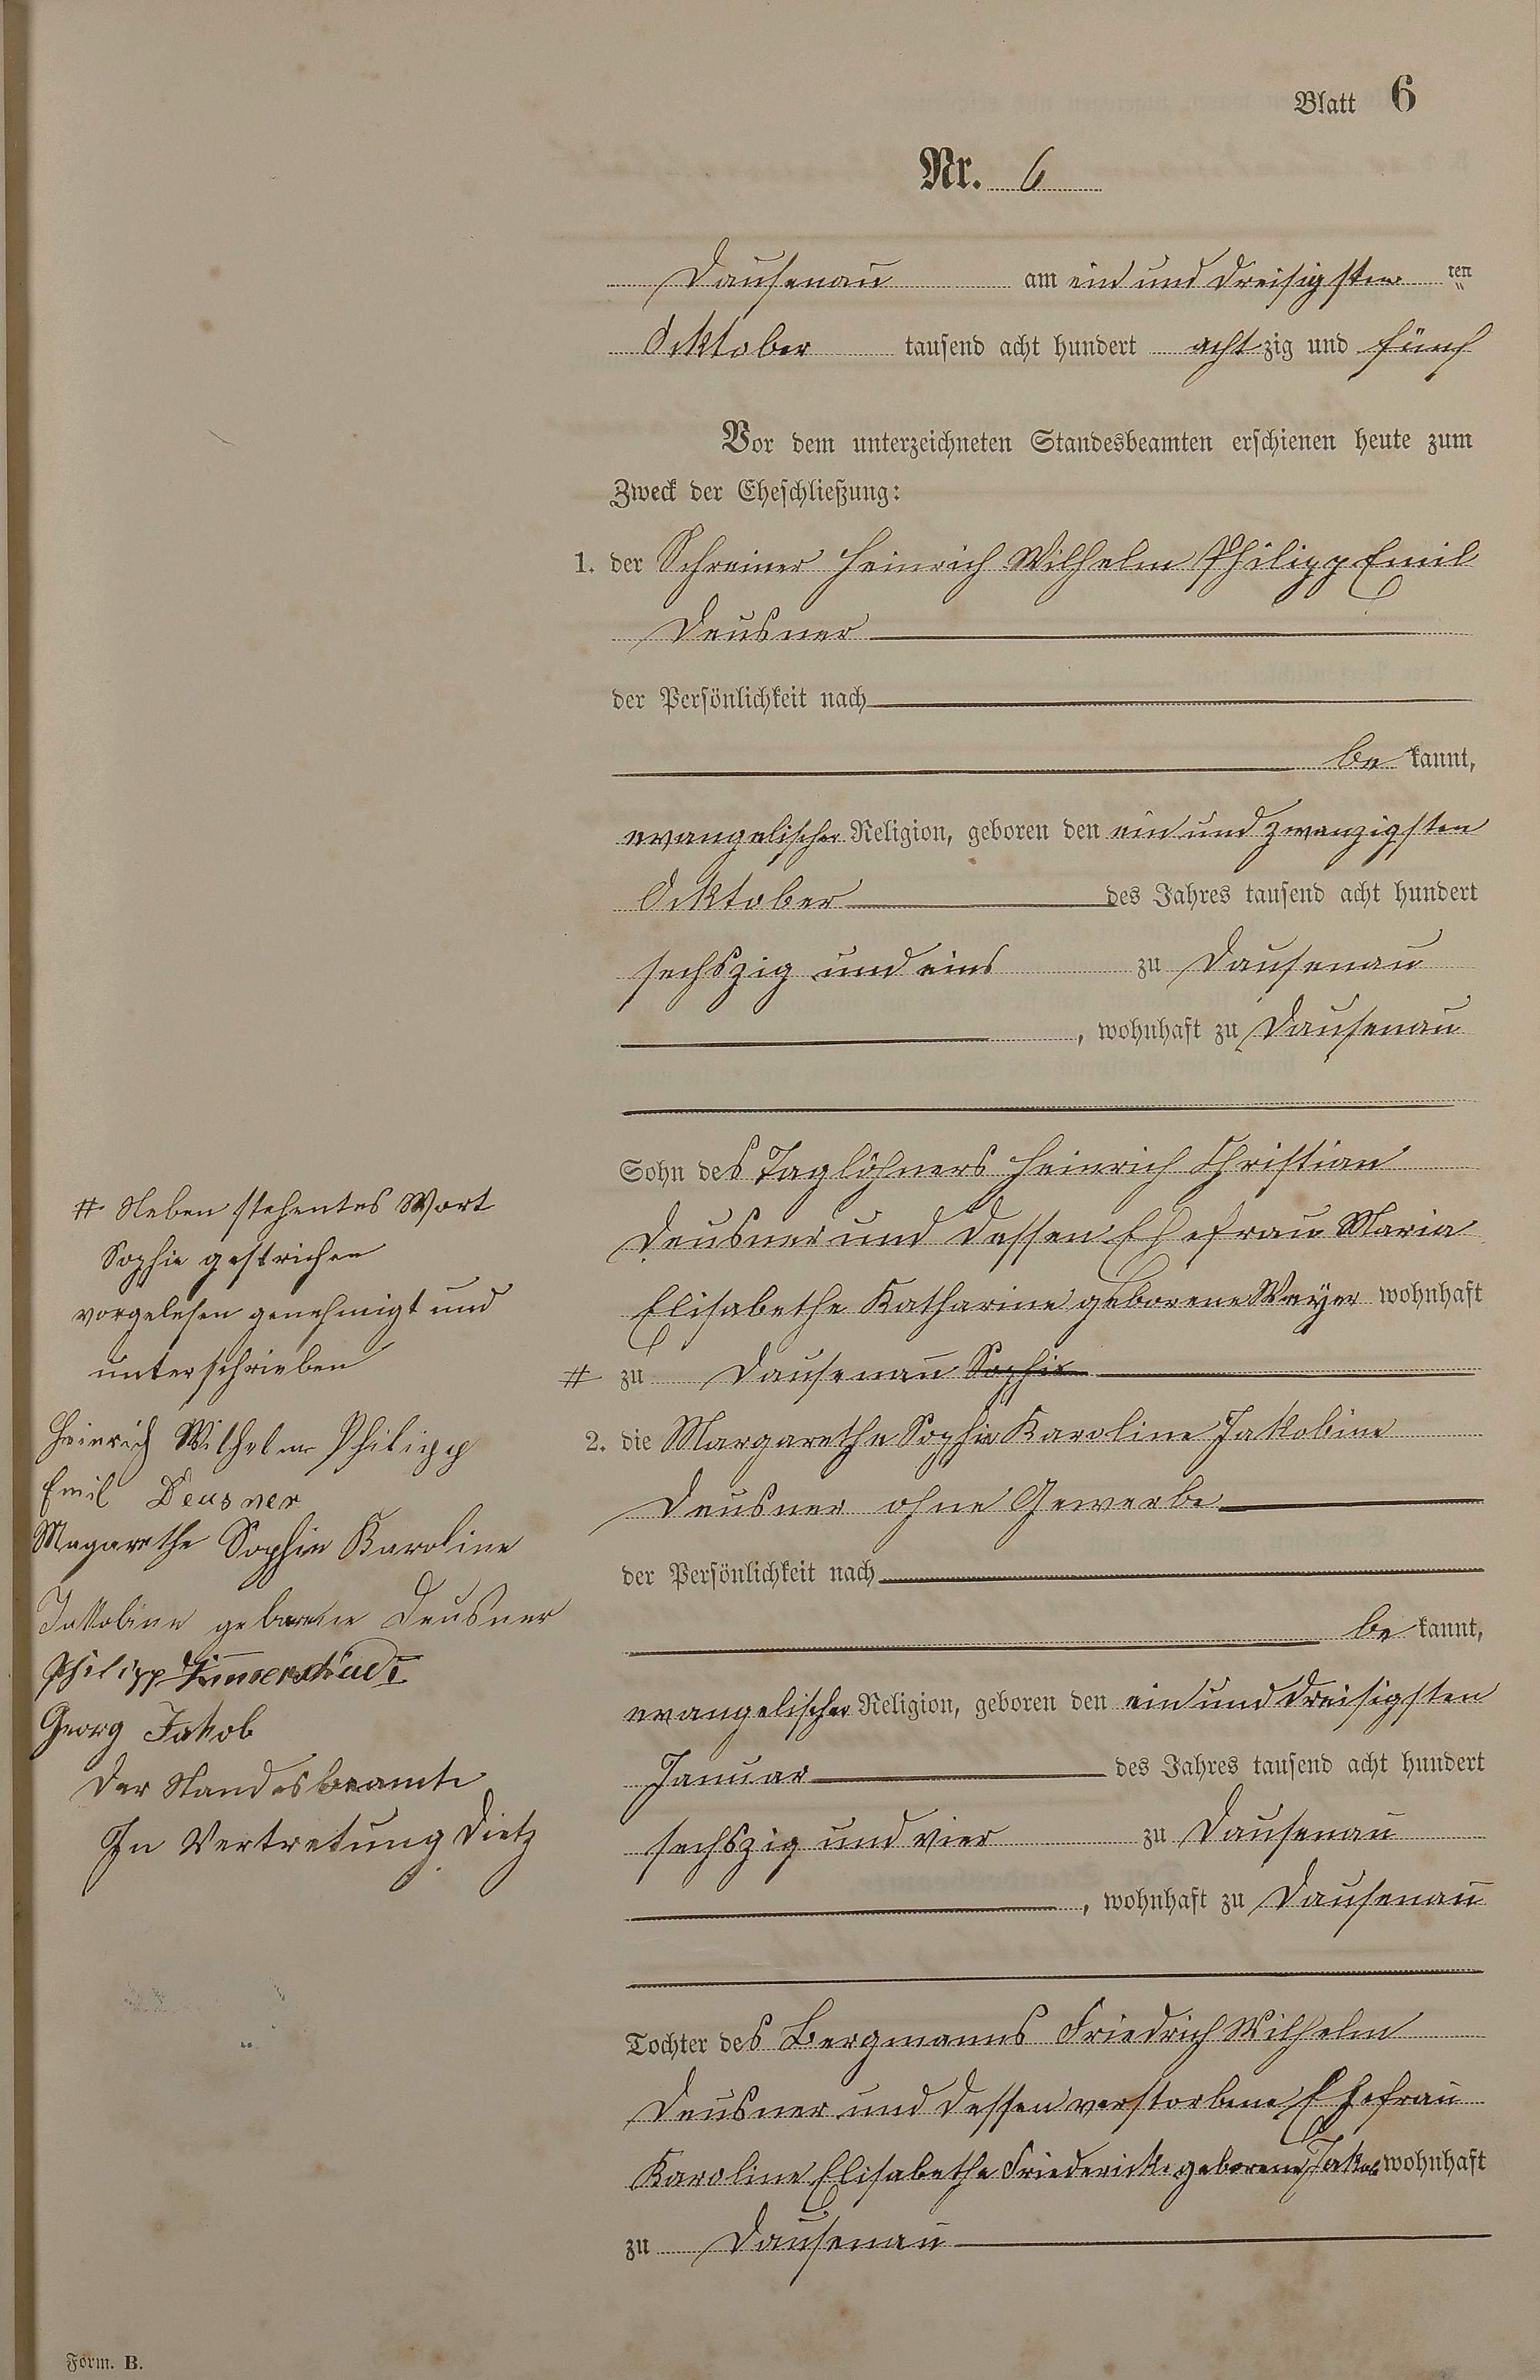 Blatt 6
Nr. 6
Dausenau am ein und dreisigsten ten
Ocktober tausend acht hundert achtzig und fünf
Vor dem unterzeichneten Standesbeamten erschienen heute zum
Zweck der Eheschließung:
1. der Schreiner Heinrich Wilhelm Philipp Emil
Deusner
der Persönlichkeit nach
be kannt,
evangelischer Religion, geboren den ein und zwanzigsten
Ocktober des Jahres tausend acht hundert
sechszig und eins zu Dausenau
, wohnhaft zu Dausenau
Sohn des Taglöhners Heinrich Christian
Deusner und dessen Ehefrau Maria
Elisabethe Katharine geborene Weyer wohnhaft
# zu Dausenau Sophie
2. die Margarethe Sophie Karoline Jakobine
Deusner ohne Gewerbe
der Persönlichkeit nach
be kannt,
evangelischer Religion, geboren den ein und dreisigsten
Januar des Jahres tausend acht hundert
sechszig und vier zu Dausenau
, wohnhaft zu Dausenau
Tochter des Bergmanns Friedrich Wilhelm
Deusner und dessen verstorbene Ehefrau
Karoline Elisabethe Friedericke geborene Jakob wohnhaft
zu Dausenau
# Neben stehentes Wort
Sophie gestrichen
vorgelesen genehmigt und
unterschrieben
Heinrich Wilhelm Philipp
Emil Deusner
Magarethe Sophie Karoline
Jakobine geborene Deusner
Philipp
Georg Jakob
Der Standesbeamte
In Vertretung Dietz
Form. B.